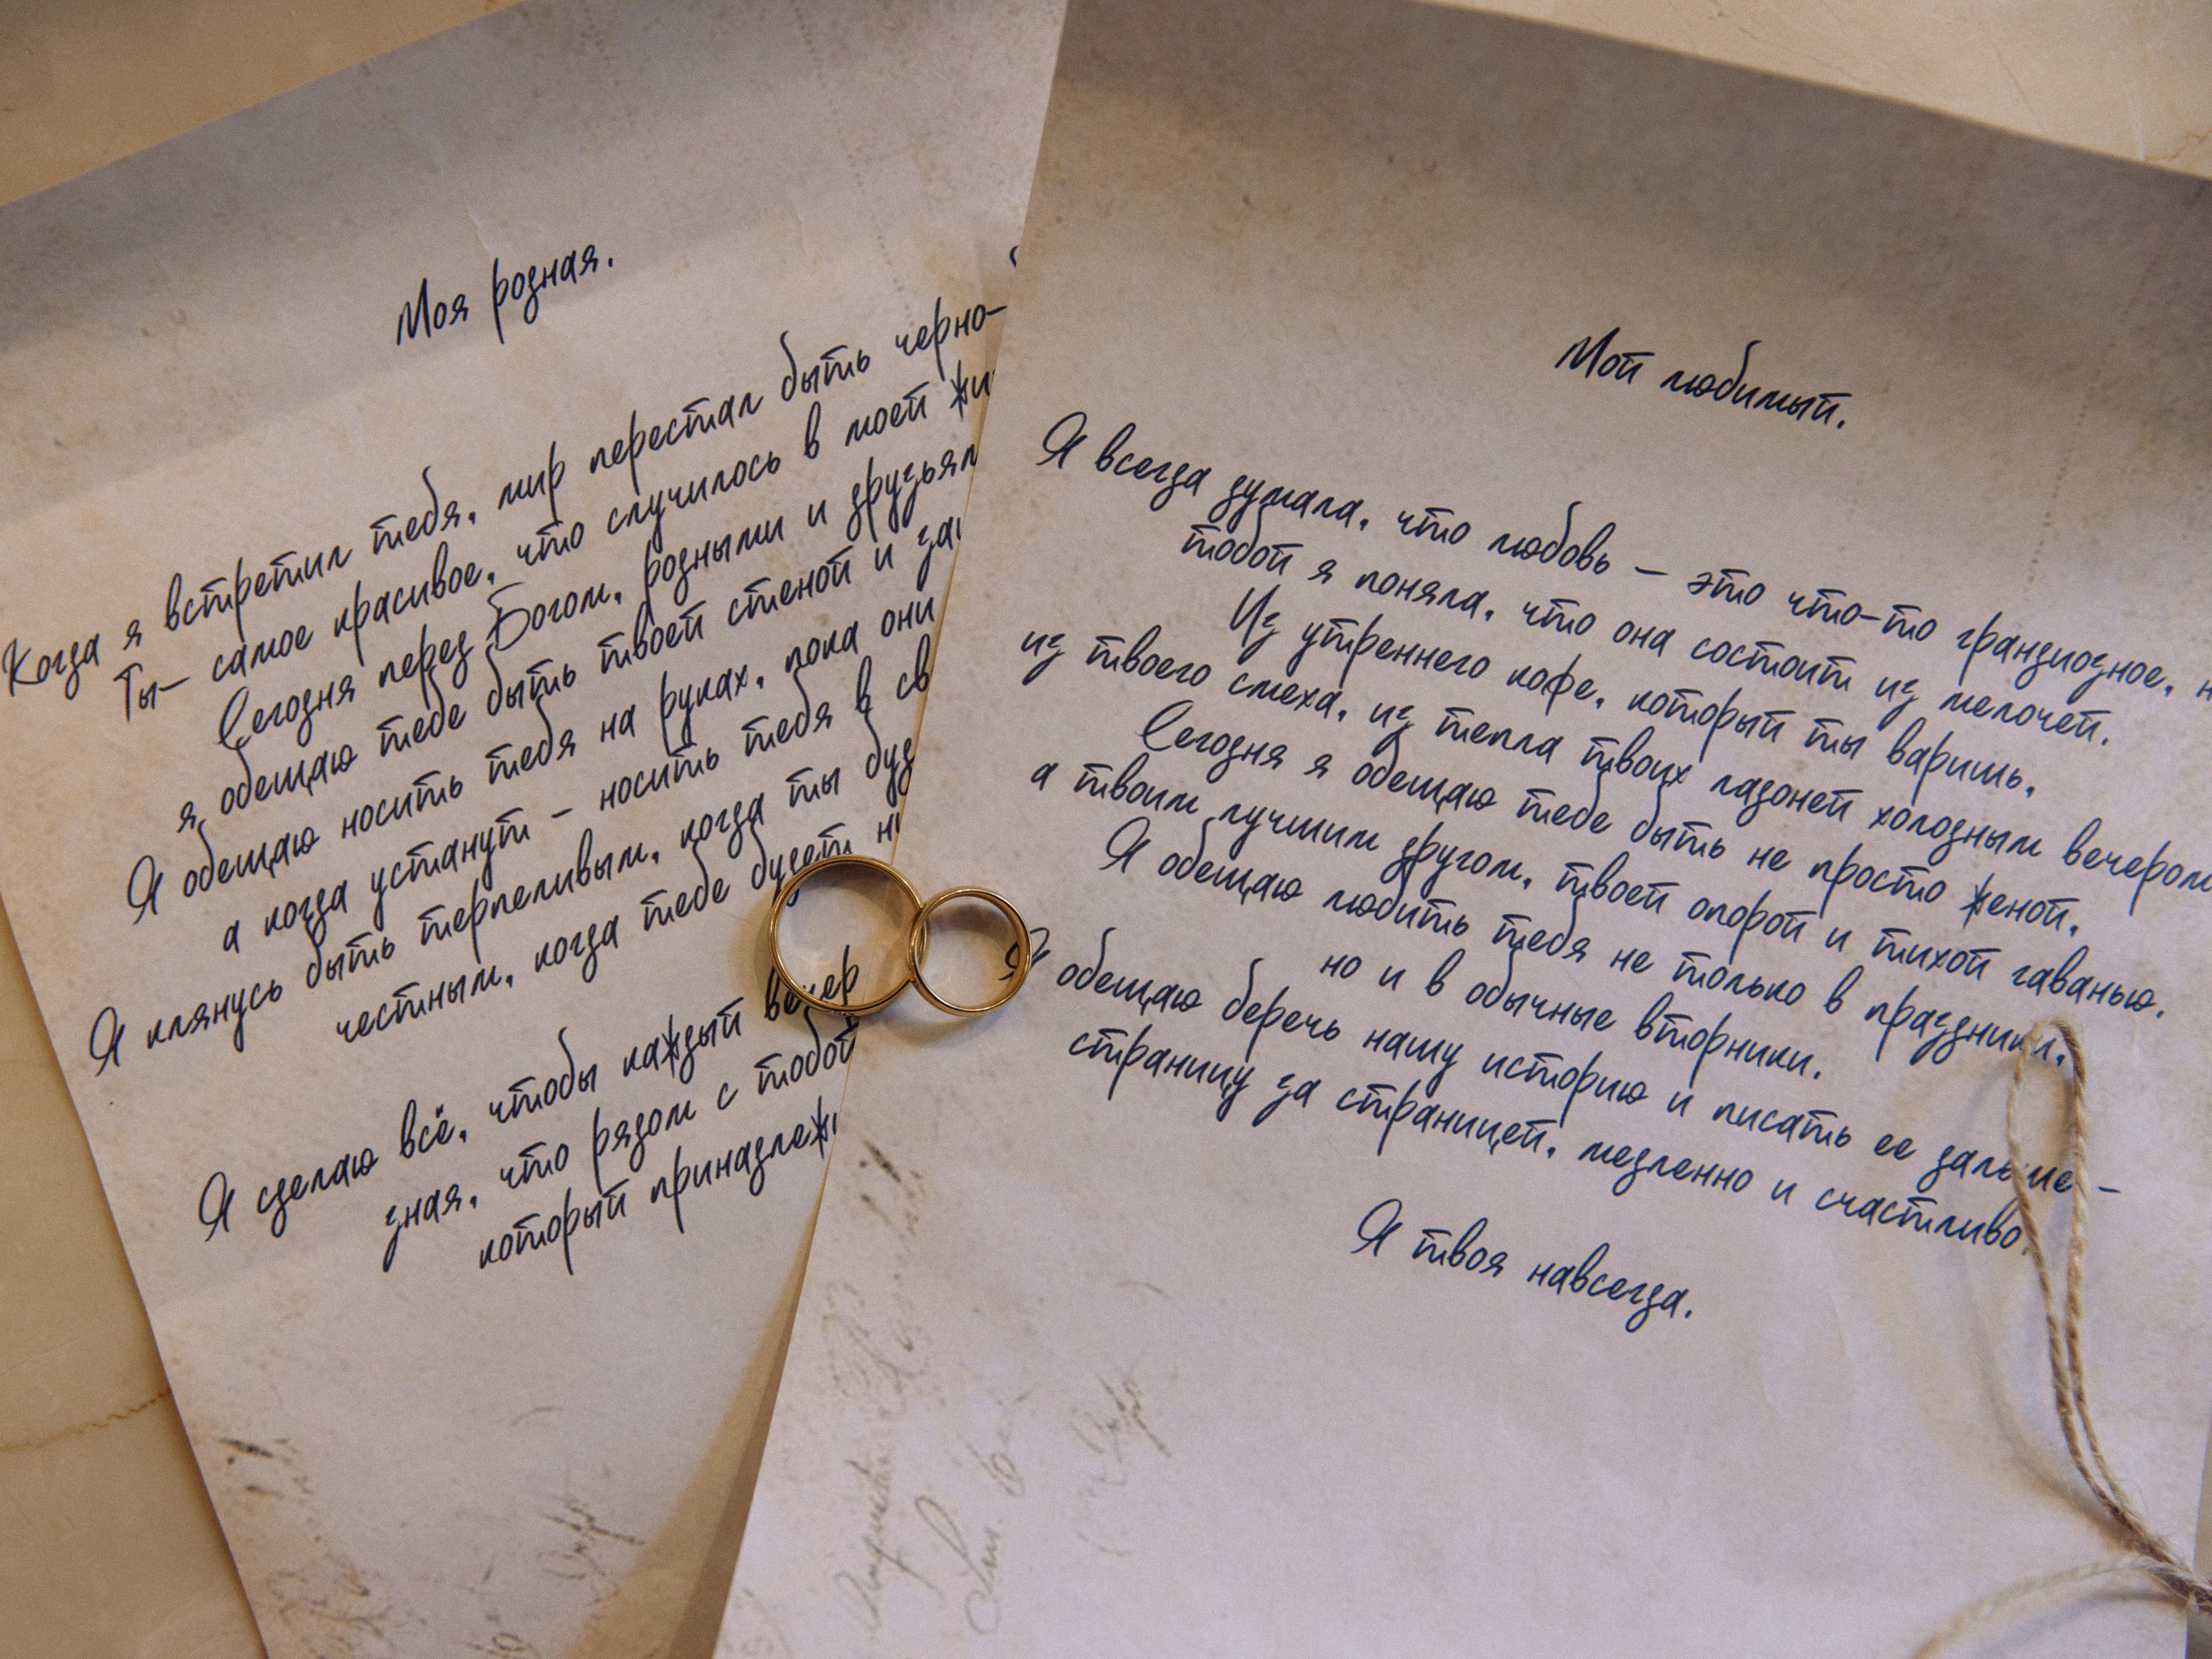 Моя родная.
Когда я встретил тебя, мир перестал быть черно-
Ты— самое красивое, что случилось в моей
Сегодня перед Богом, родными и
я обещаю тебе быть твоей стеной и
Я обещаю носить тебя на руках, пока они
а когда устанут — носить тебя в
Я клянусь быть терпеливым, когда ты
честным, когда тебе будет
Я сделаю всё, чтобы каждый вечер
зная, что рядом с тобой
который
Мой любимый.
Я всегда думала, что любовь — это что-то грандиозное,
тобой я поняла, что она состоит из мелочей.
Из утреннего кофе, который ты варишь,
из твоего смеха, из тепла твоих ладоней холодным вечером
Сегодня я обещаю тебе быть не просто женой,
а твоим лучшим другом, твоей опорой и тихой гаванью.
Я обещаю любить тебя не только в праздники,
но и в обычные вторники.
Я обещаю беречь нашу историю и писать ее дальше —
страницу за страницей, медленно и счастливо.
Я твоя навсегда.